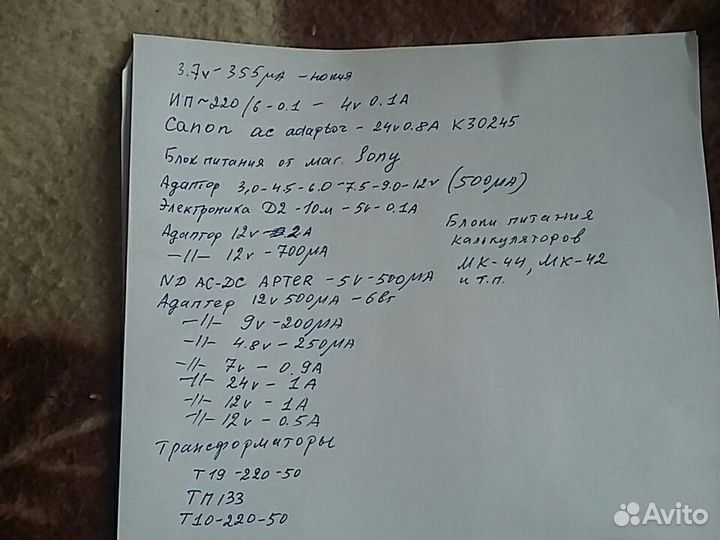 3.7v - 355мА - нокия
ИП ~ 220/6 - 0.1 - 4v 0.1А
Canon ac adaptor - 24v 0.8А К30245
Блок питания от маг. Sony
Адаптор 3,0-4.5-6.0-7.5-9.0-12v (500мА)
Электроника Д2-10м - 5v - 0.1А
Адаптор 12v - 2А
-//- 12v - 700мА
ND AC-DC APTER - 5v - 500мА
Адаптер 12v 500мА - 6вт
-//- 9v - 200мА
-//- 4.8v - 250мА
-//- 7v - 0.9А
-//- 24v - 1А
-//- 12v - 1А
-//- 12v - 0.5А
Трансформаторы
Т19-220-50
ТП133
Т10-220-50
Блоки питания
калькуляторов
МК-44, МК-42
и т.п.
Avito